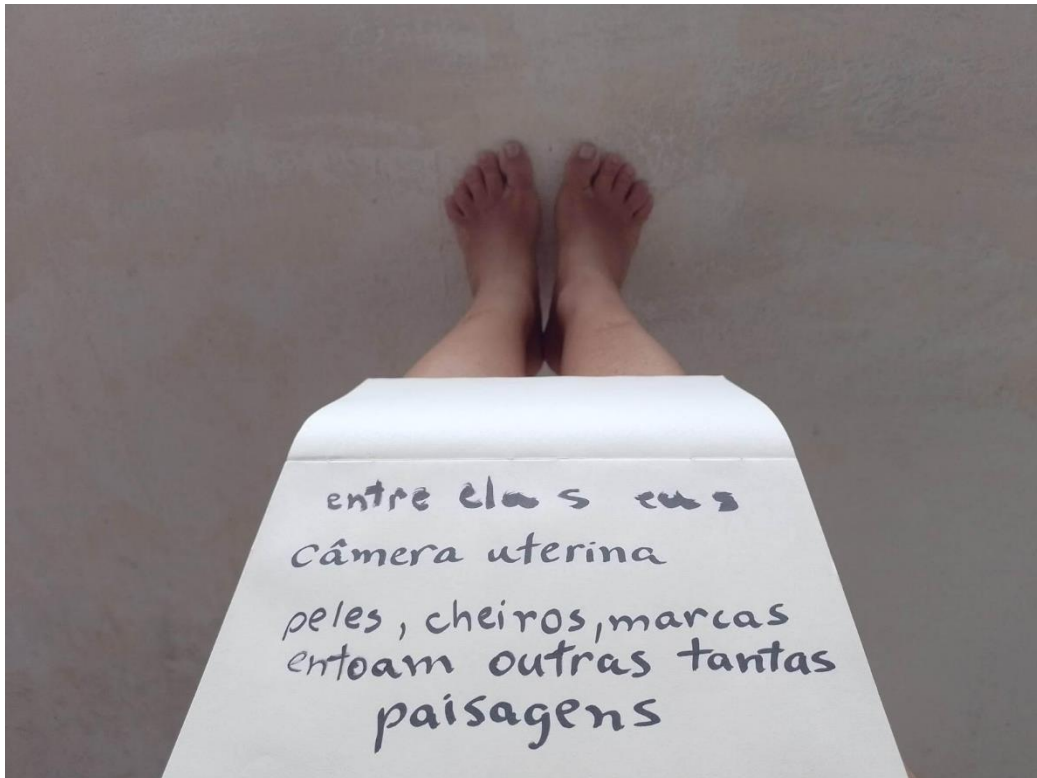 entre elas eus
câmera uterina
peles, cheiros, marcas
entoam outras tantas
paisagens